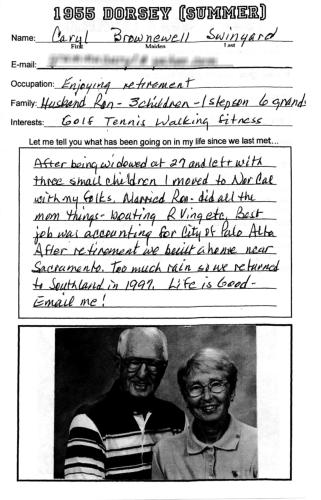 1955 DORSEY (SUMMER)
Name: Caryl Brownewell Swingard
First Maiden Last
E-mail:
Occupation: Enjoying retirement
Family: Husband Ron - 3 children - 1 stepson 6 grands
Interests: Golf Tennis Walking fitness
Let me tell you what has been going on in my life since we last met...
After being widowed at 29 and left with
three small children I moved to Nor Cal
with my folks. Married Ron - did all the
mom things - boating RVing etc, Best
job was accounting for City of Palo Alto
After retirement we built a home near
Sacramento. Too much rain so we returned
to Southland in 1997. Life is Good -
Email me!